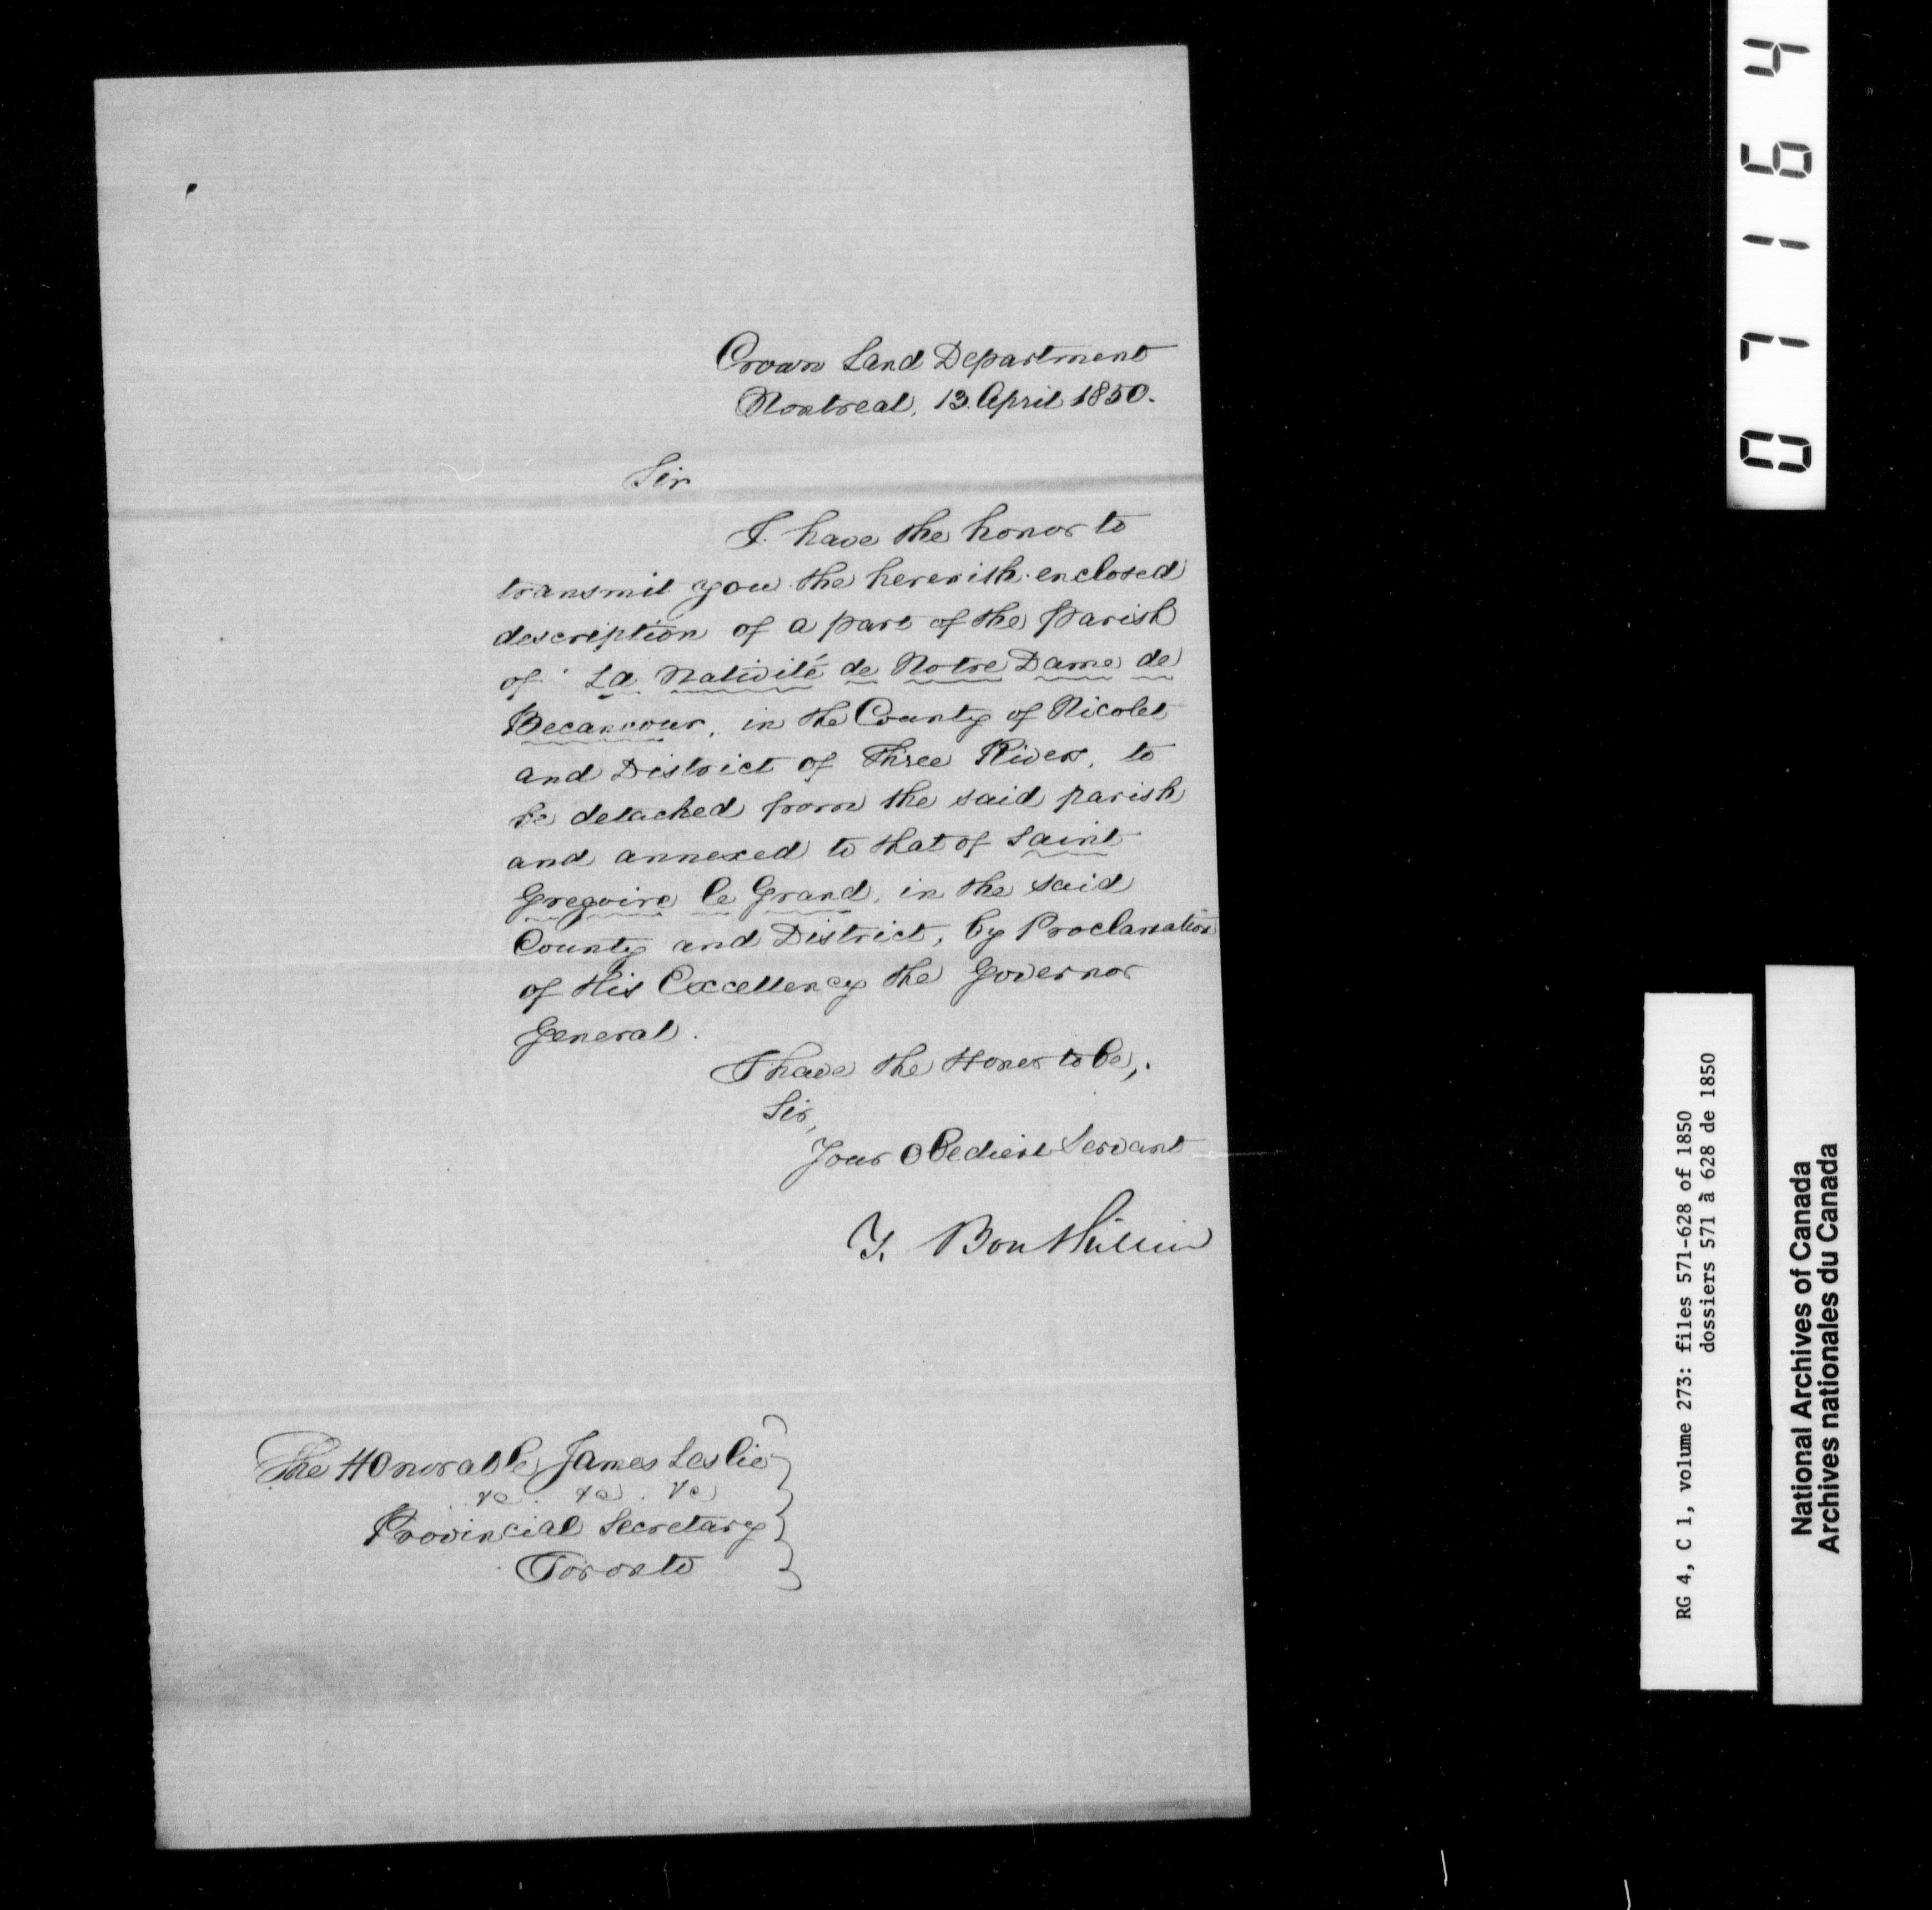 Crown Land Department
Montreal, 13. April 1850.
Sir
I have the honor to
transmit you the herewith enclosed
description of a part of the parish
of La Nativité de Notre Dame de
Becancour, in the County of Nicolet
and District of Three Rivers, to
be detached from the said parish
and annexed to that of Saint
Gregoire le Grand, in the said
County and District, by Proclamation
of His Excellency the Governor
General.
I have the Honor to be,
Sir,
Your Obedient Servant
T. Bouthillier
The Honorable James Leslie
&c. &c. &c
Provincial Secretary
Toronto
071164
RG 4, C 1, volume 273: files 571-628 of 1850
dossiers 571 à 628 de 1850
National Archives of Canada
Archives nationales du Canada